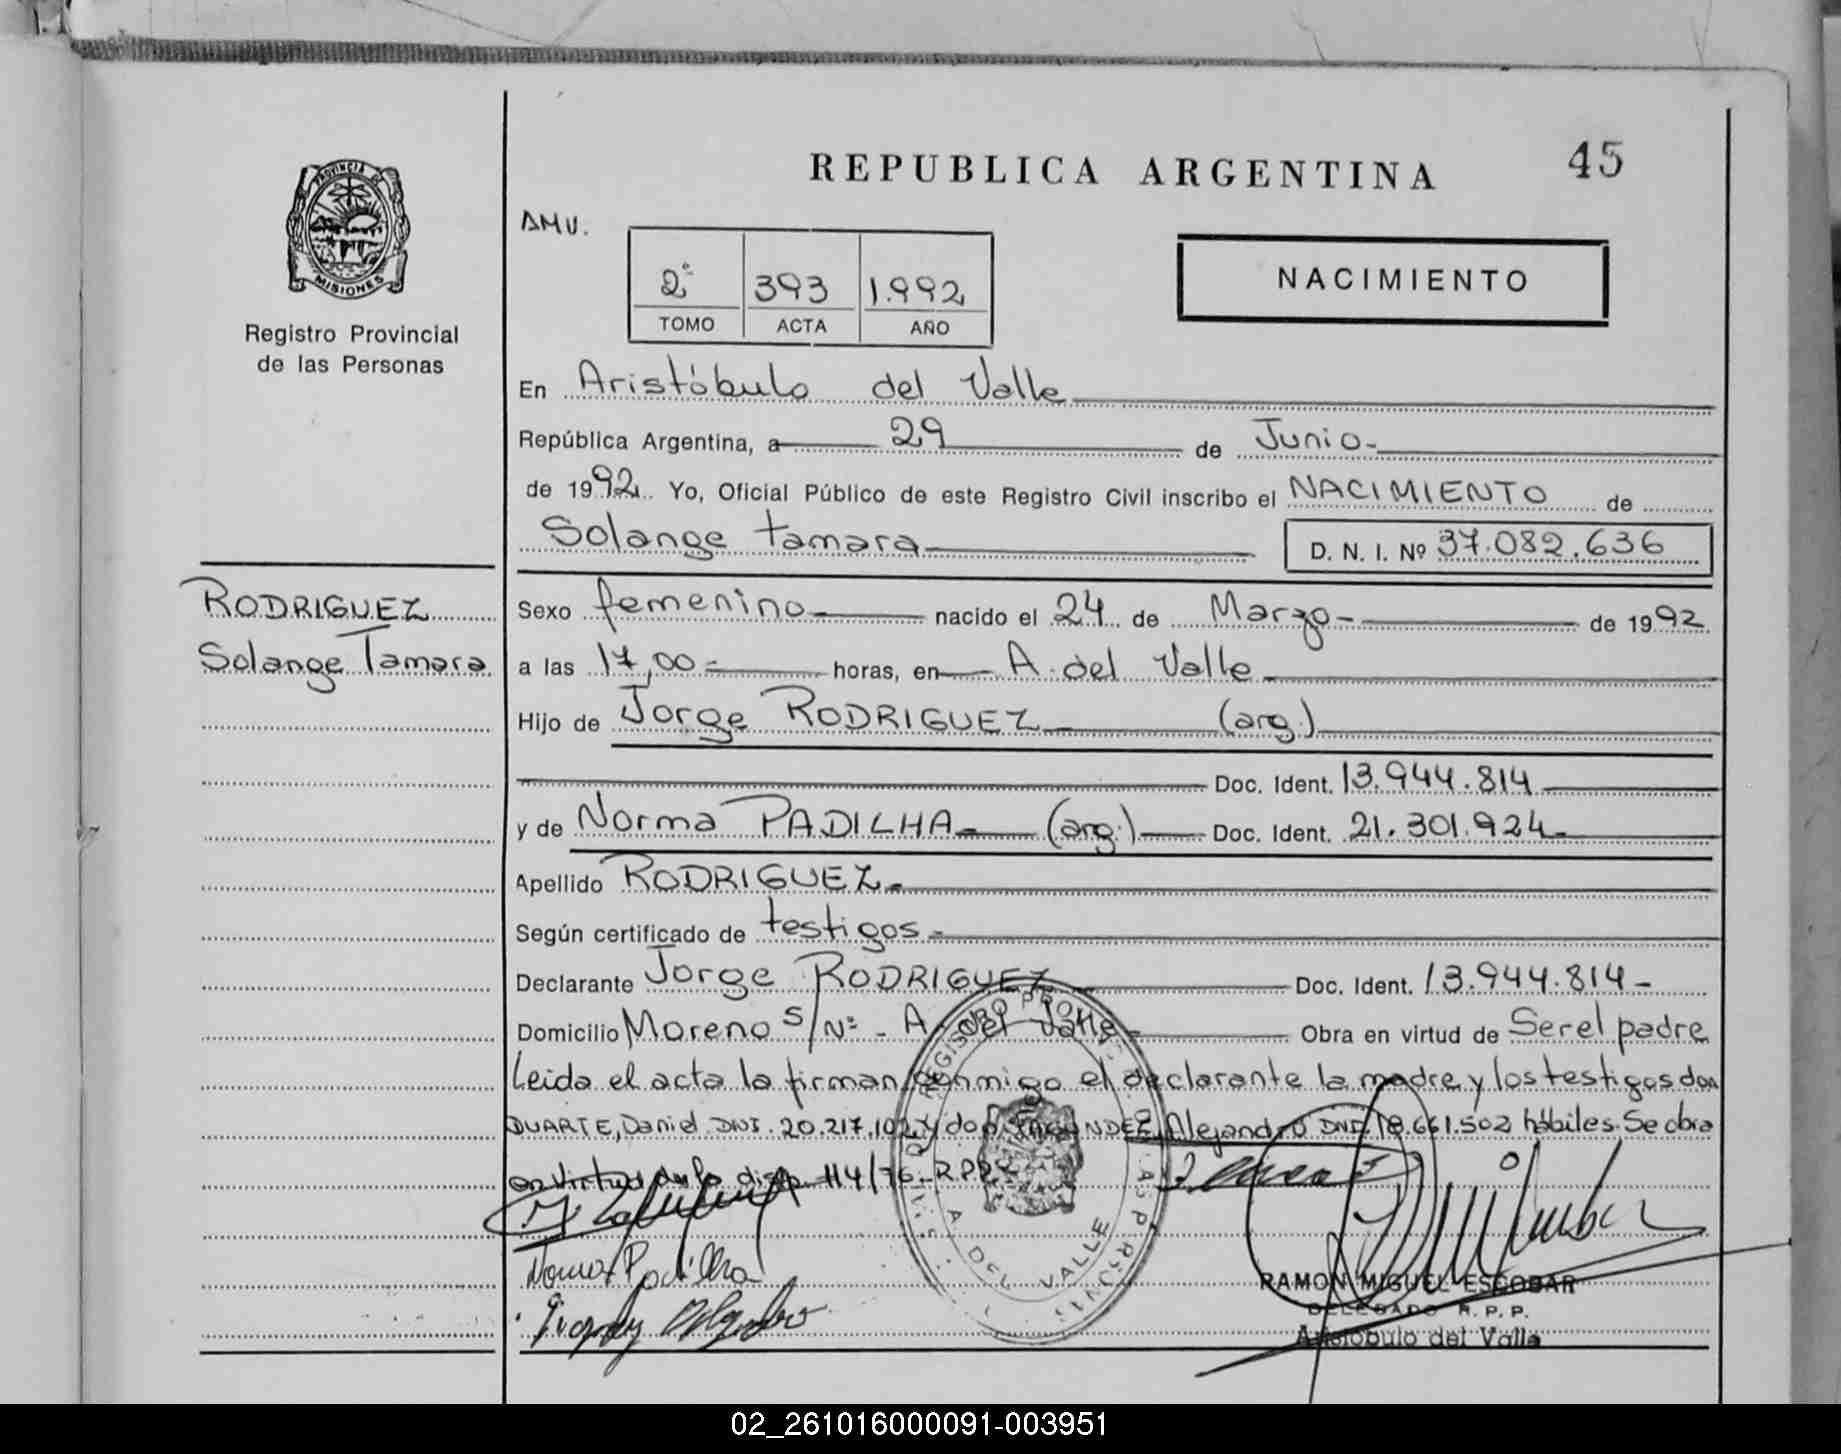 REPUBLICA ARGENTINA
45
PROVINCIA DE
MISIONES
Registro Provincial
de las Personas
AMV.
2º 393 1.992
TOMO ACTA AÑO
NACIMIENTO
En Aristóbulo del Valle
República Argentina, a 29 de Junio-
de 1992. Yo, Oficial Público de este Registro Civil inscribo el NACIMIENTO de
Solange tamara
D. N. I. Nº 37.082.636
RODRIGUEZ
Solange Tamara
Sexo femenino nacido el 24 de Marzo- de 1992
a las 17,00= horas, en A. del Valle
Hijo de Jorge RODRIGUEZ (arg.)
Doc. Ident. 13.944.814
y de Norma PADILHA (arg.) Doc. Ident. 21.301.924
Apellido RODRIGUEZ
Según certificado de testigos
Declarante Jorge RODRIGUEZ Doc. Ident. 13.944.814-
Domicilio Moreno S/Nº - A del Valle Obra en virtud de Ser el padre
Leida el acta la firman conmigo el declarante la madre y los testigos don
DUARTE, Daniel DNI. 20.217.102 y don Alejandro DNI. 18.661.502 hábiles. Se obra
en virtud de la disp. 114/76 R.P.P.
Norma Padilha
A. DEL VALLE
RAMON MIGUEL ESCOBAR
DELEGADO R. P. P.
Aristóbulo del Valle
02_261016000091-003951